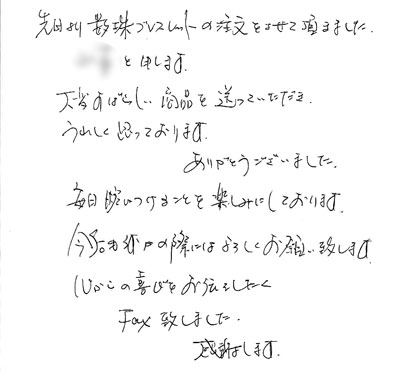 先日より数珠ブレスレットの注文をさせて頂きました.
と申します.
大変すばらしい商品を送っていただき.
うれしく思っております.
ありがとうございました.
毎日腕につけることを楽しみにしております.
今後も の際にはよろしくお願い致します
心からの喜びをお伝えしたく
Fax致しました.
感謝します.